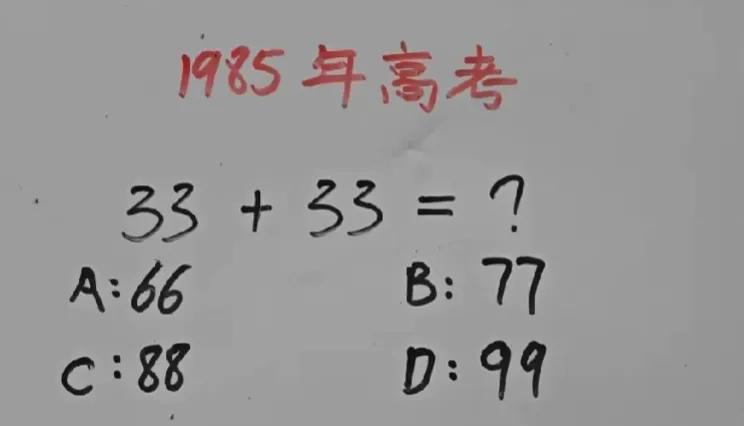 1985年高考
33 + 33 = ?
A:66 B:77
C:88 D:99